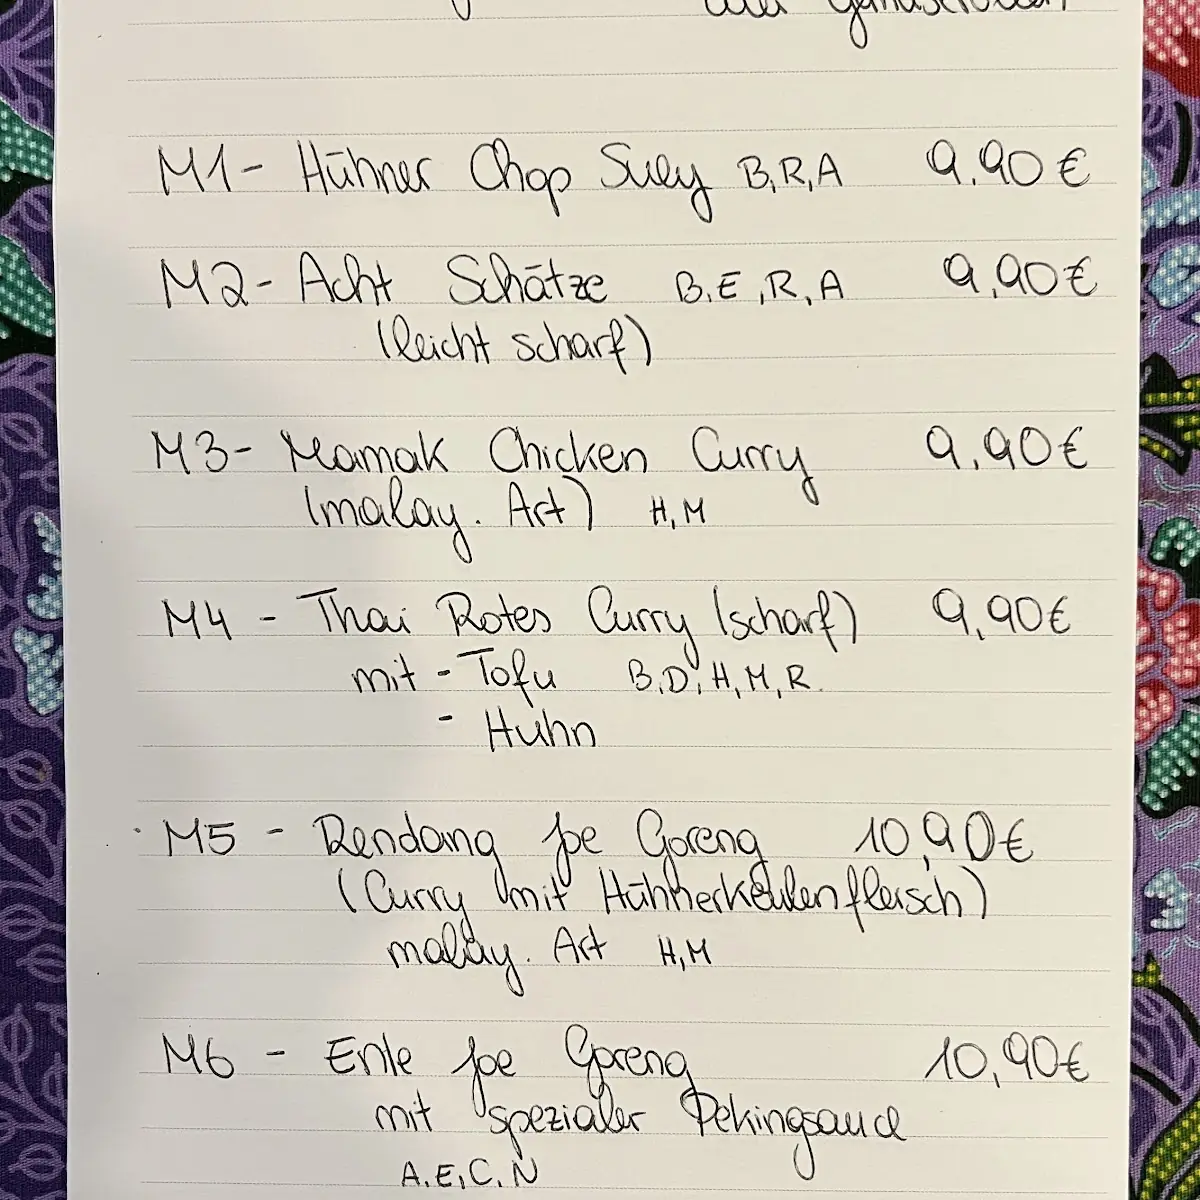 M1- Hühner Chop Suey B,R,A 9,90 €
M2- Acht Schätze B,E,R,A 9,90€
(leicht scharf)
M3- Mamak Chicken Curry 9,90€
(malay. Art) H,M
M4 - Thai Rotes Curry (scharf) 9,90€
mit - Tofu B,D,H,M,R.
- Huhn
M5 - Rendang joe Goreng 10,90€
(Curry mit Hühnerkeulenfleisch)
malay. Art H,M
M6 - Ente joe Goreng 10,90€
mit spezialer Pekingsauce
A,E,C,N